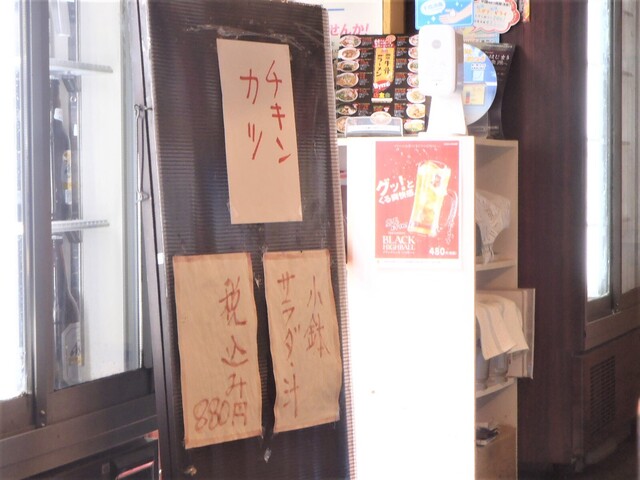 チキン
カツ
小鉢
サラダ・汁
税込み
880円
せんか!
グッ!と
くる爽快感!
BLACK
HIGHBALL
480